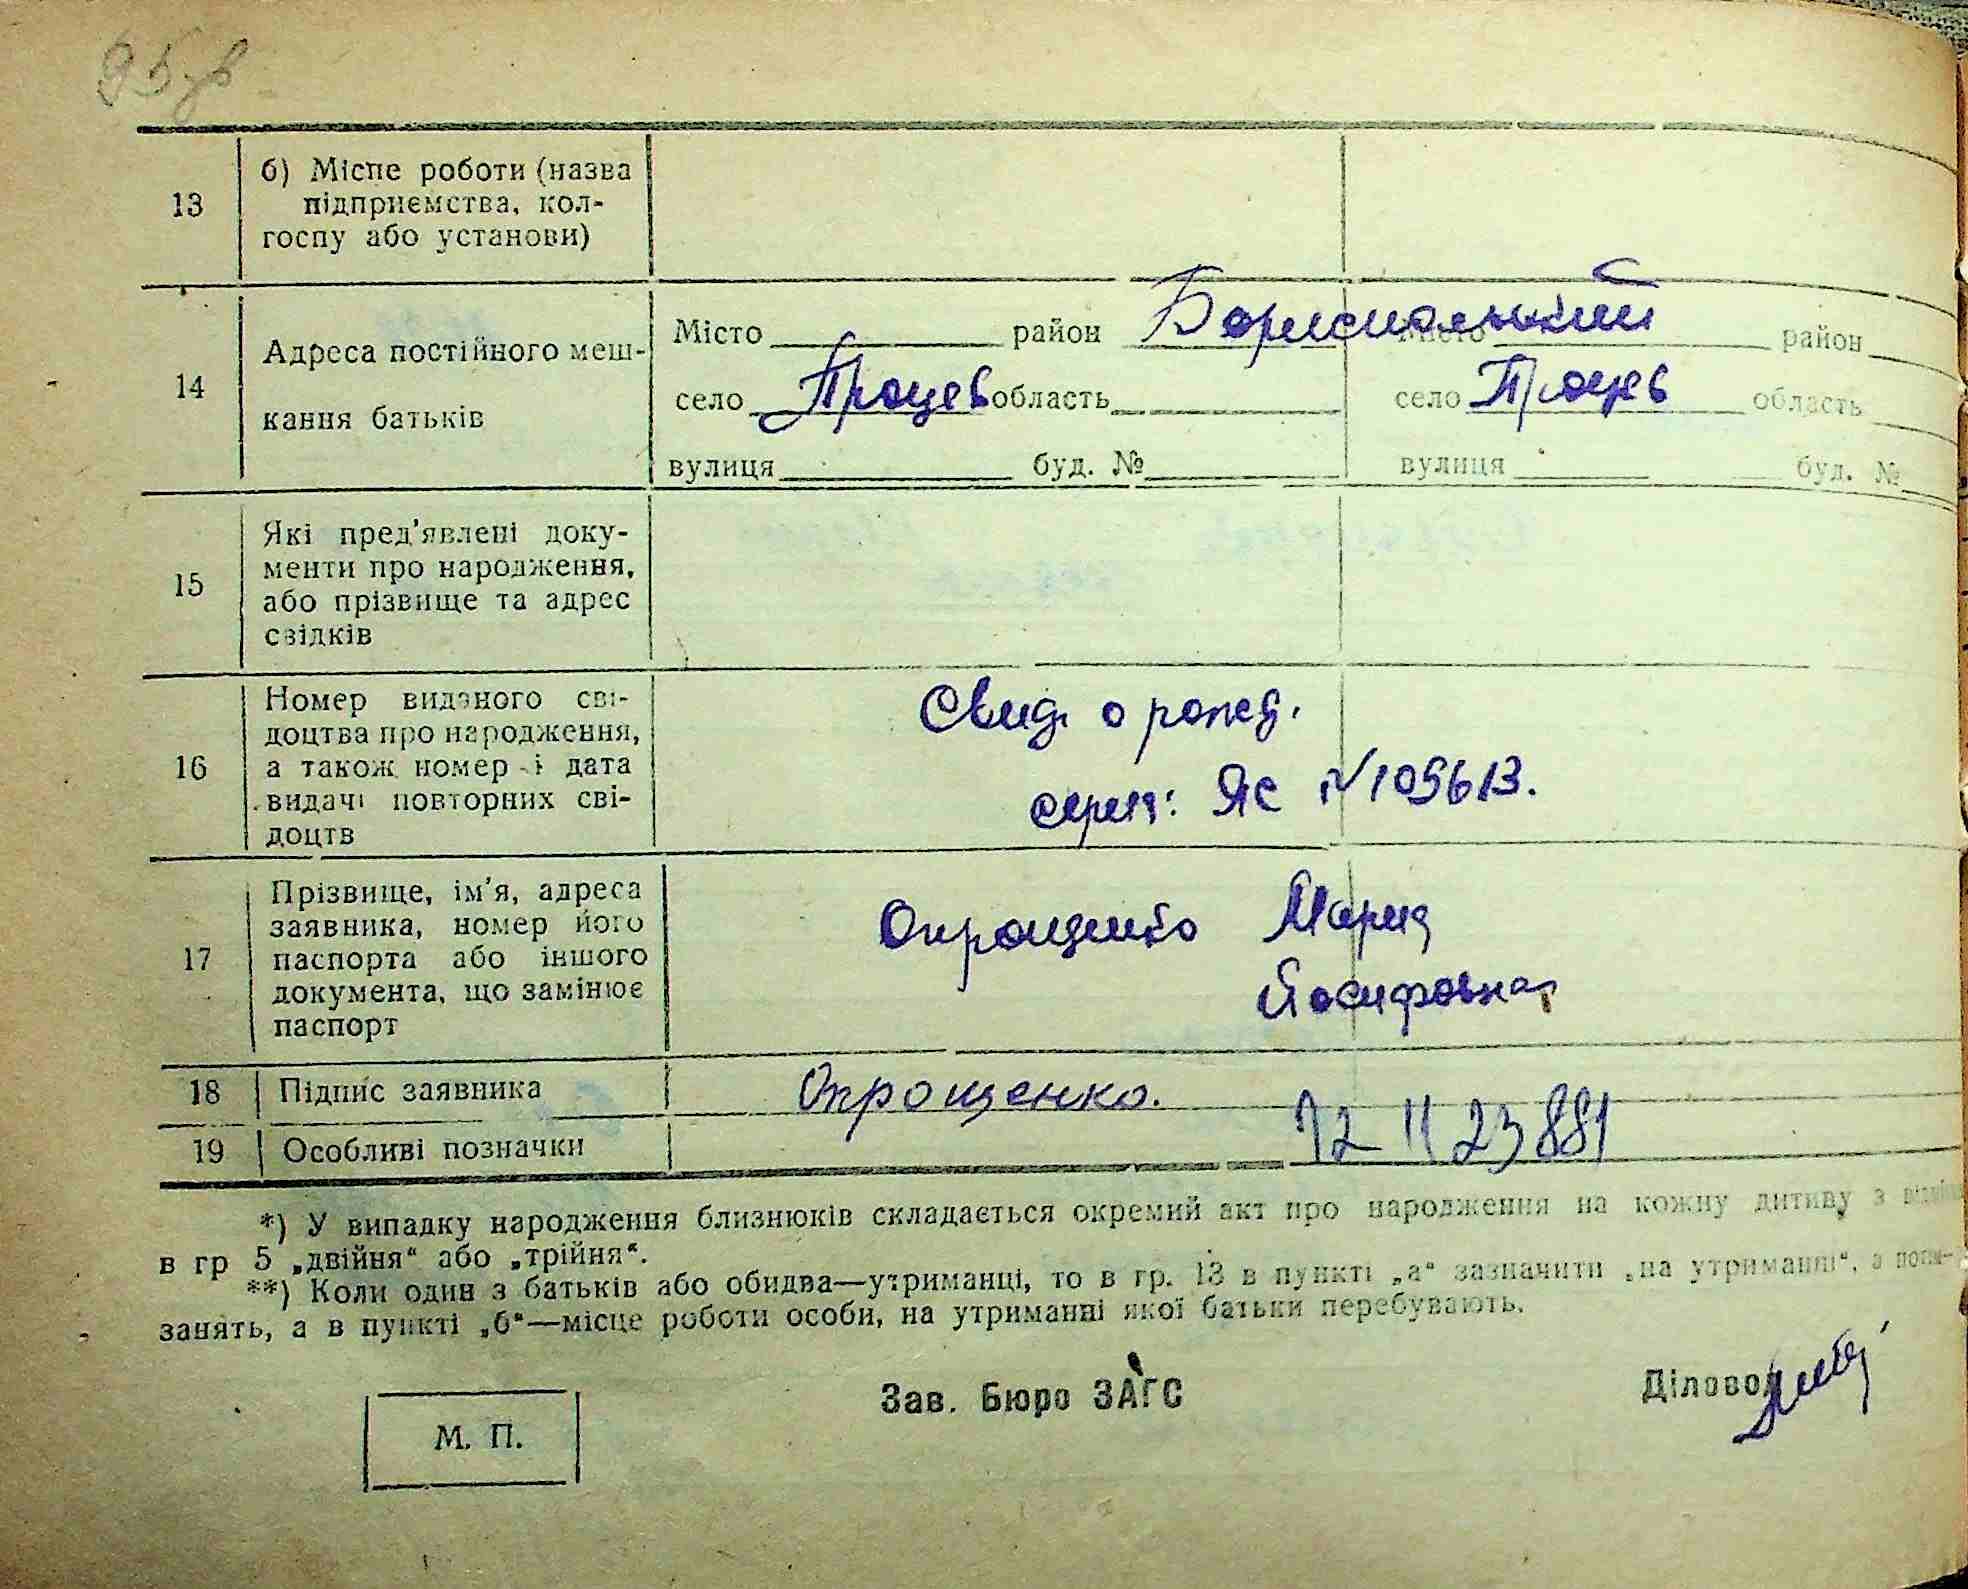 95 зв
13
б) Місце роботи (назва
підприємства, кол-
госпу або установи)
14
Адреса постійного меш-
кання батьків
Місто район Бориспольский
село Процев область
вулиця буд. №
Місто район
село Процев область
вулиця буд. №
15
Які пред’явлені доку-
менти про народження,
або прізвище та адрес
свідків
16
Номер виданого сві-
доцтва про народження,
а також номер і дата
видачі повторних сві-
доцтв
Свид. о рожд.
серия: ЯС №105613.
17
Прізвище, ім’я, адреса
заявника, номер його
паспорта або іншого
документа, що замінює
паспорт
Опрощенко Мария
Йосифовна
18 Підпис заявника
Опрощенко.
19 Особливі позначки
12 11 23 881
*) У випадку народження близнюків складається окремий акт про народження на кожну дитину з
в гр 5 „двійня“ або „трійня“.
**) Коли один з батьків або обидва—утриманці, то в гр. 13 в пункті „а“ зазначити „на утриманні“, а
занять, а в пункті „б“—місце роботи особи, на утриманні якої батьки перебувають.
Зав. Бюро ЗАГС
Діловод
М. П.